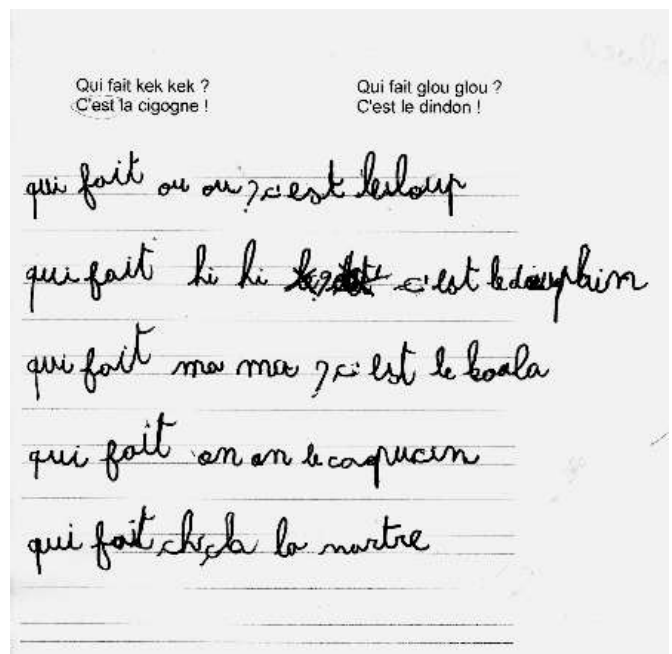 Qui fait kek kek ?
C'est la cigogne !
Qui fait glou glou ?
C'est le dindon !
qui fait ou ou ? c'est le loup
qui fait hi hi c'est le dauphin
qui fait ma ma ? c'est le koala
qui fait on on le capucin
qui fait la martre